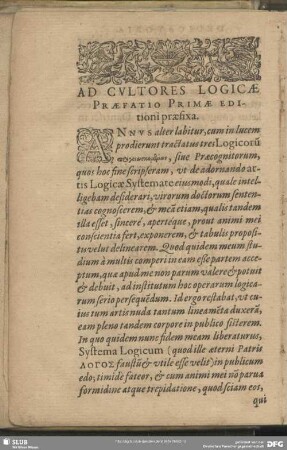 AD CVLTORES LOGICÆ
PRÆFATIO PRIMÆ EDI-
tioni præfixa.
ANNVS alter labitur, cum in lucem
prodierunt tractatus tres Logicorū
siue Præcognitorum,
quos hoc fine scripseram, vt de adornando ar-
tis Logicæ Systemate eiusmodi, quale intel-
ligebam desiderari, virorum doctorum senten-
tias cognoscerem, & meā etiam, qualis tandem
illa esset, sincerè, aperteque, prout animi mei
conscientia fert, exponerem, & tabulis proposi-
tu velut delinearem. Quod quidem meum stu-
dium à multis comperi in eam esse partem acce-
ptum, qua apud me non parum valere & potuit
& debuit, ad institutum hoc operarum logica-
rum serio persequēdum. Id ergo restabat, vt cu-
ius tum artis nuda tantum lineamēta duxerā,
eam pleno tandem corpore in publico sisterem.
In quo quidem nunc fidem meam liberaturus,
Systema Logicum (quod ille æterni Patris
ΛΟΓΟΣ faustū & vtile esse velit) in publicum
edo; timide fateor, & cum animi mei nō parua
formidine atque trepidatione, quod sciam eos,
qui
SLUB
Wir führen Wissen.
DFG